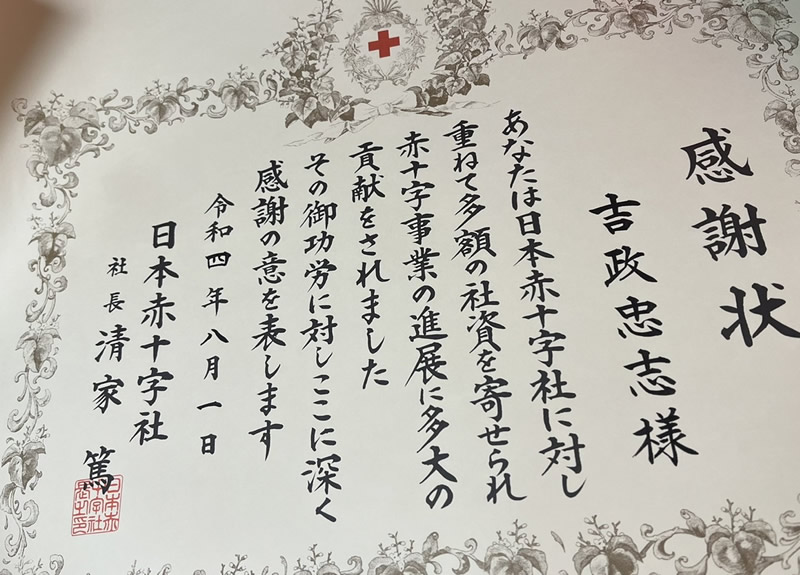 感謝状
吉政忠志様
あなたは日本赤十字社に対し
重ねて多額の社資を寄せられ
赤十字事業の進展に多大の
貢献をされました
その御功労に対しここに深く
感謝の意を表します
令和四年八月一日
日本赤十字社
社長 清家 篤